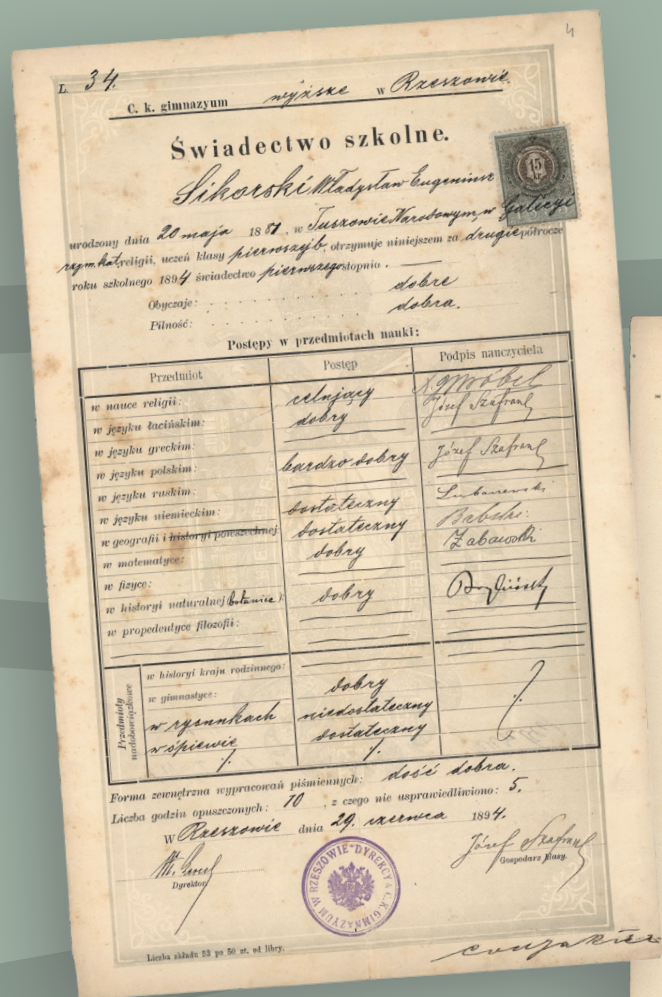 4
L. 34.
C. k. gimnazyum wyższe w Rzeszowie.
Świadectwo szkolne.
15
kr
Sikorski Władysław Eugeniusz
urodzony dnia 20 maja 1881, w Tuszowie Narodowym, w Galicyi
rzym. kat. religii, uczeń klasy pierwszej b, otrzymuje niniejszem za drugie półrocze
roku szkolnego 1894 świadectwo pierwszego stopnia.
Obyczaje: dobre
Pilność: dobra.
Postępy w przedmiotach nauki:
Przedmiot Postęp Podpis nauczyciela
w nauce religii: celujący X. Wróbel
w języku łacińskim: dobry Józef Szafran
w języku greckim:
w języku polskim: bardzo dobry Józef Szafran
w języku ruskim:
w języku niemieckim: dostateczny
w geografii i historyi powszechnej: dostateczny
w matematyce: dobry Zabawski
w fizyce:
w historyi naturalnej (botanice): dobry
w propedeutyce filozofii:
Przedmioty nadobowiązkowe
w historyi kraju rodzinnego:
w gimnastyce: dobry
w rysunkach niedostateczny
w śpiewie dostateczny
Forma zewnętrzna wypracowań piśmiennych: dość dobra.
Liczba godzin opuszczonych: 10, z czego nie usprawiedliwiono: 5.
W Rzeszowie dnia 29. czerwca 1894.
Józef Szafran
Dyrektor Gospodarz klasy.
DYREKCYA C.K. GIMNAZYUM W RZESZOWIE
Liczba składu 53 po 50 ct. od libry.